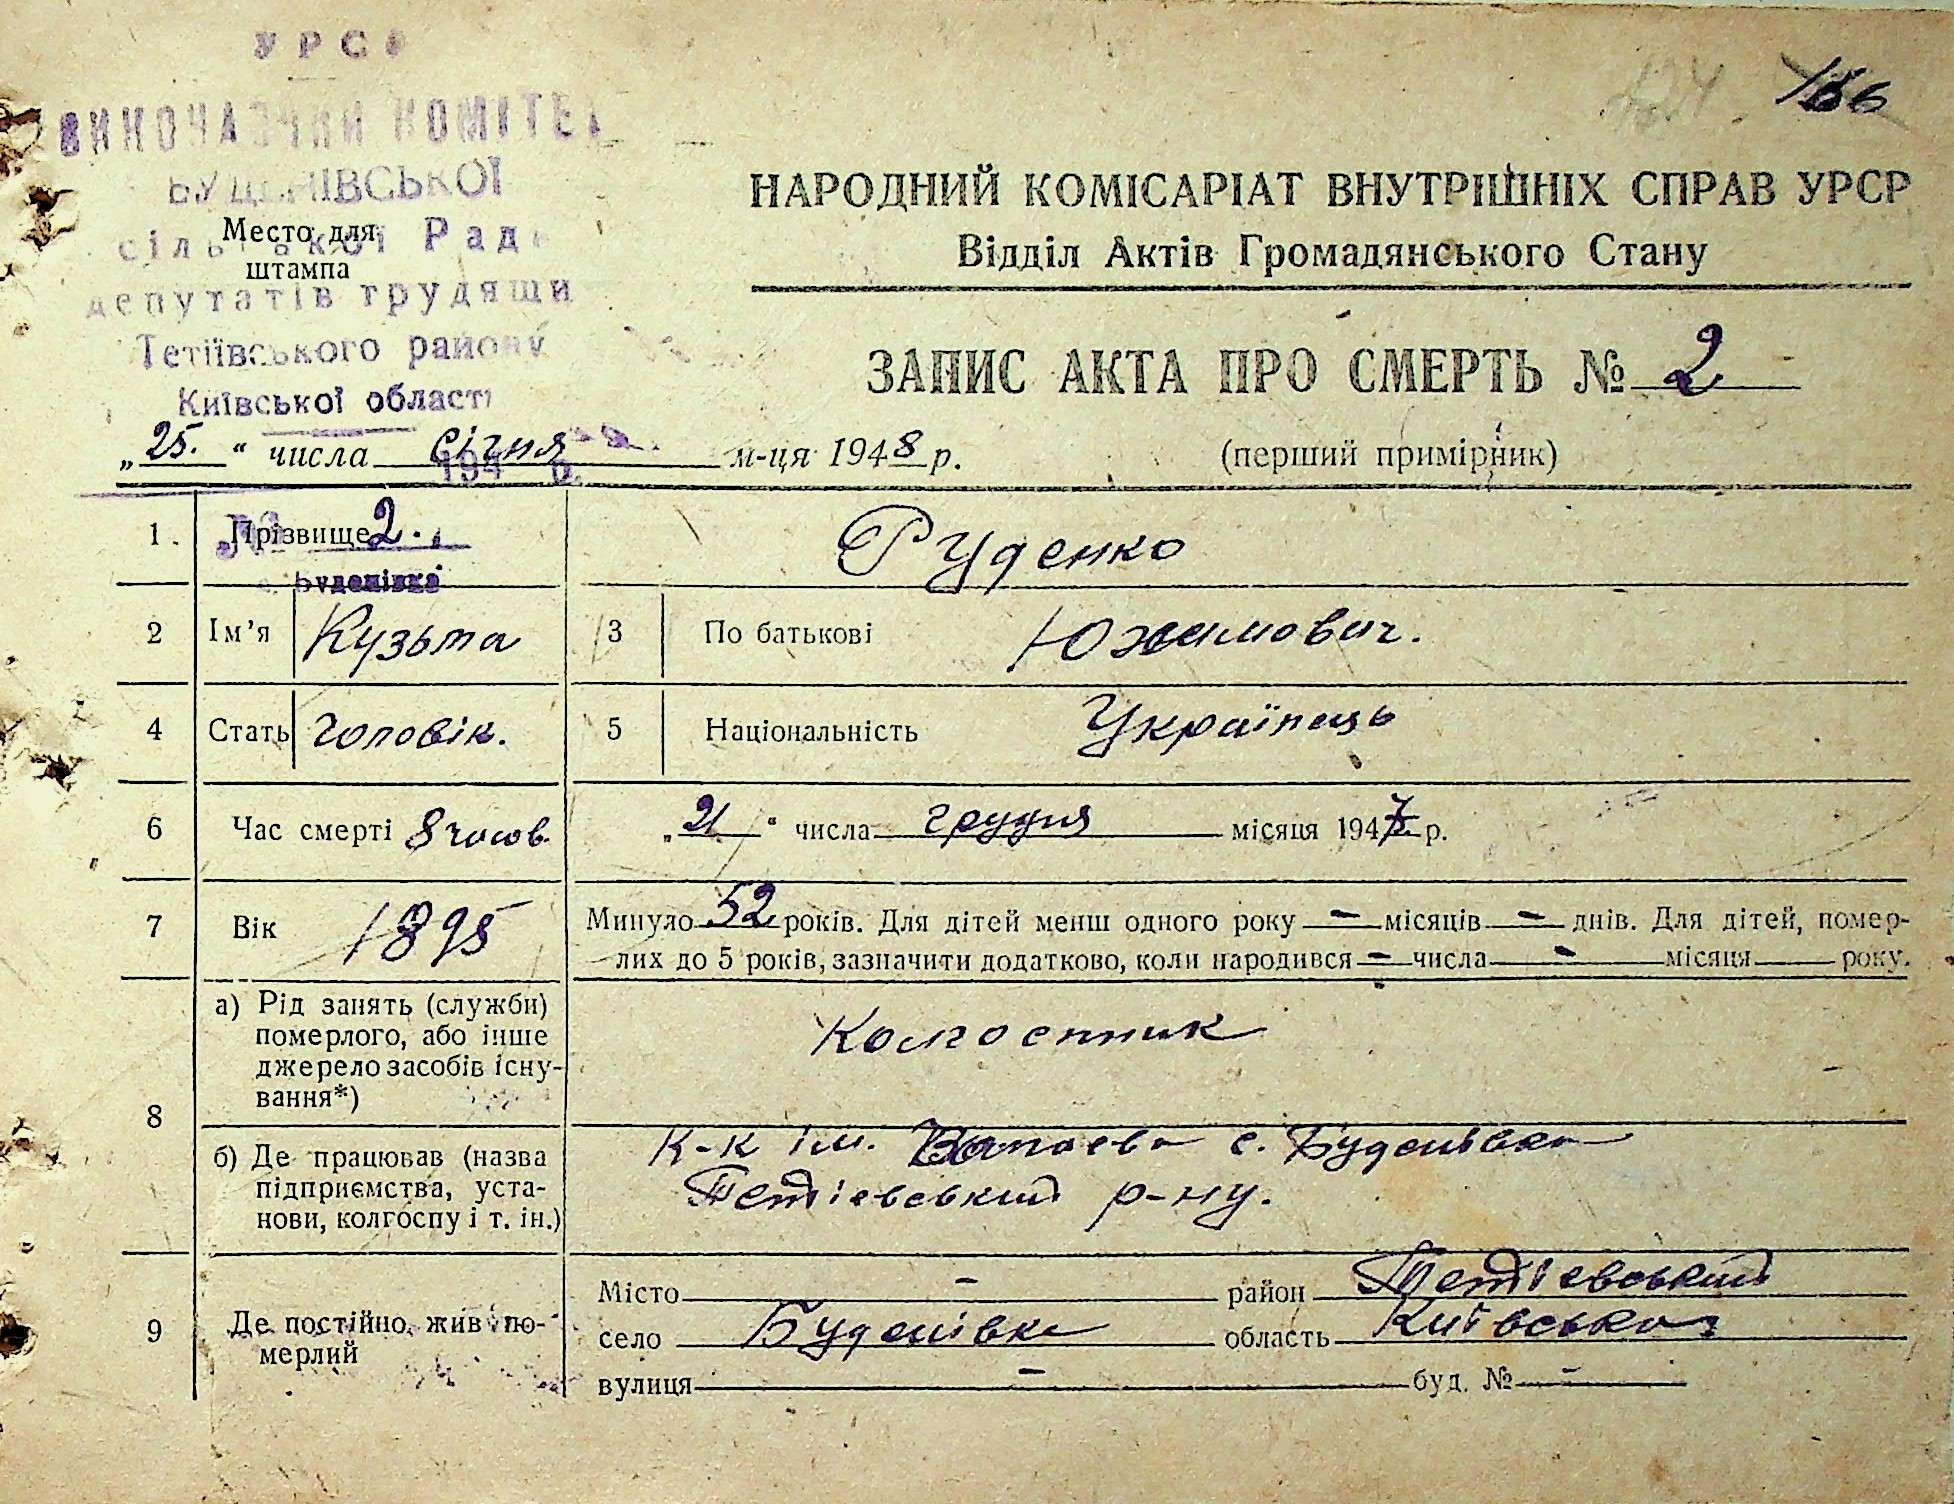 УРСР
ВИКОНАВЧИЙ КОМІТЕТ
БУДЕНІВСЬКОЇ
сільської Ради
депутатів трудящи
Тетіївського району
Київської області
194 р.
№ 2.
с. Буденівка
Место для
штампа
166
НАРОДНИЙ КОМІСАРІАТ ВНУТРІШНІХ СПРАВ УРСР
Відділ Актів Громадянського Стану
ЗАПИС АКТА ПРО СМЕРТЬ № 2
„25.“ числа січня м-ця 1948 р. (перший примірник)
1. Прізвище Руденко
2 Ім'я Кузьма 3 По батькові Юхимович.
4 Стать чоловік. 5 Національність Українець
6 Час смерті 8 часов. „21“ числа грудня місяця 1947 р.
7 Вік 1895 Минуло 52 років. Для дітей менш одного року – місяців – днів. Для дітей, помер-
лих до 5 років, зазначити додатково, коли народився – числа – місяця року.
8
а) Рід занять (служби)
померлого, або інше
джерело засобів існу-
вання*)
Колгоспник
б) Де працював (назва
підприємства, уста-
нови, колгоспу і т. ін.)
К-к ім. с. Буденівка
Тетієвський р-ну.
9 Де постійно жив по-
мерлий
Місто – район Тетієвський
село Буденівка область Київська
вулиця – буд. № –